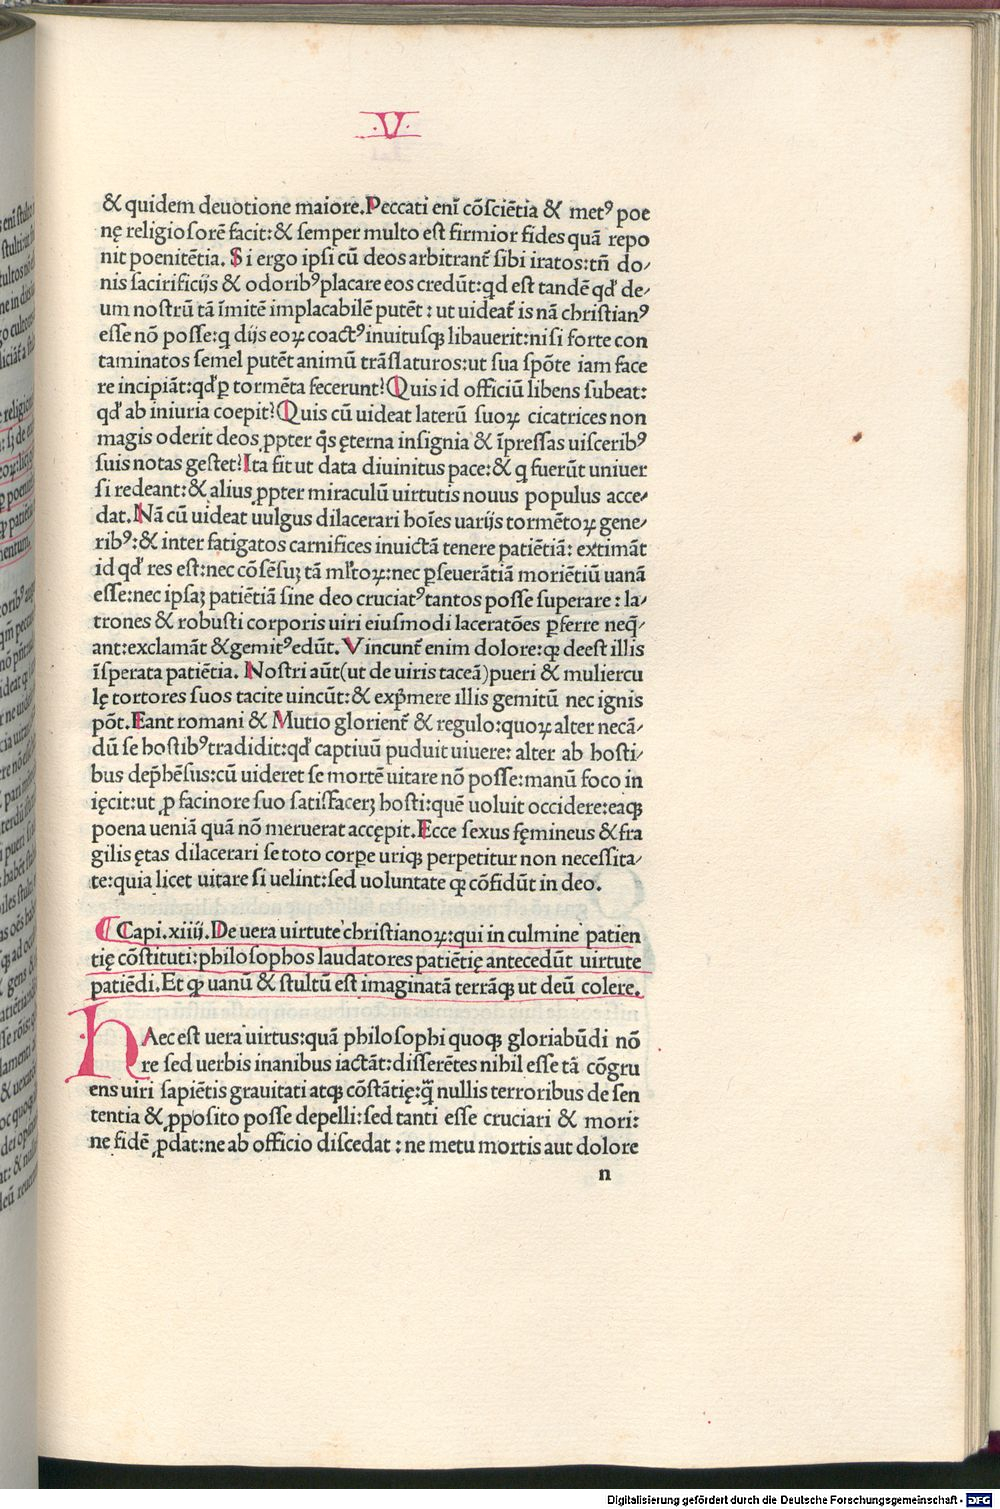 ·V·
& quidem deuotione maiore.Peccati enī cōsciētia & metꝰ poe
nę religiosorē facit:& semper multo est firmior fides quā repo
nit poenitētia. Si ergo ipsi cū deos arbitranť sibi iratos:tn̄ do⸗
nis sacirificijs & odoribꝰ placare eos credūt:qd est tandē qđ de⸗
um nostrū tā īmitē implacabilē putēt : ut uideať is nā christianꝰ
esse nō posse:q dijs eoꝝ coactꝰ inuitusqꝫ libauerit:nisi forte con
taminatos semel putēt animū trāslaturos:ut sua spōte iam face
re incipiāt:qđ ꝑ tormēta fecerunt?Quis id officiū libens subeat:
qđ ab iniuria coepit?Quis cū uideat laterū suoꝝ cicatrices non
magis oderit deos ꝓpter qs̄ ęterna insignia & īpressas uisceribꝰ
suis notas gestet?Ita fit ut data diuinitus pace:& q fuerūt uniuer
si redeant:& alius ꝓpter miraculū uirtutis nouus populus acce⸗
dat.Nā cū uideat uulgus dilacerari hoīes uarijs tormētoꝝ gene⸗
ribꝰ:& inter fatigatos carnifices inuictā tenere patiētiā: extimāt
id qđ res est:nec cōsēsuꝫ tā ml̄toꝝ:nec ꝑseuerātiā moriētiū uanā
esse:nec ipsaꝫ patiētiā sine deo cruciatꝰ tantos posse superare : la⸗
trones & robusti corporis uiri eiusmodi laceratōes ꝑferre neq̄⸗
ant:exclamāt &gemitꝰ edūt. Vincunť enim dolore:qꝫ deest illis
īsperata patiētia. Nostri aūt(ut de uiris taceā)pueri & muliercu
lę tortores suos tacite uincūt:& exp̄mere illis gemitū nec ignis
pōt.Eant romani & Mutio glorienť & regulo:quoꝝ alter necā⸗
dū se hostibꝰ tradidit:qđ captiuū puduit uiuere: alter ab hosti⸗
bus dep̄hēsus:cū uideret se mortē uitare nō posse:manū foco in
ięcit:ut ꝓ facinore suo satisfacerꝫ hosti:quē uoluit occidere:eaqꝫ
poena ueniā quā nō meruerat accępit.Ecce sexus fęmineus & fra
gilis ętas dilacerari se toto corꝑe uriqꝫ perpetitur non necessita⸗
te:quia licet uitare si uelint:sed voluntate qꝫ cōfidūt in deo.
¶ Capi.xiiij.De uera uirtute christianoꝝ:qui in culmine patien
tię cōstituti:philosophos laudatores patiētię antecedūt uirtute
patiēdi.Et qꝫ uanū & stultū est imaginatā terrāqꝫ ut deū colere.
hAec est uera uirtus:quā philosophi quoqꝫ gloriabūdi nō
re sed uerbis inanibus iactāt:disserētes nihil esse tā cōgru
ens uiri sapiētis grauitati atqꝫ cōstātię:q̄ꝫ nullis terroribus de sen
tentia & ꝓposito posse depelli:sed tanti esse cruciari & mori:
ne fidē ꝓdat:ne ab officio discedat : ne metu mortis aut dolore
n
Digitalisierung gefördert durch die Deutsche Forschungsgemeinschaft - DFG